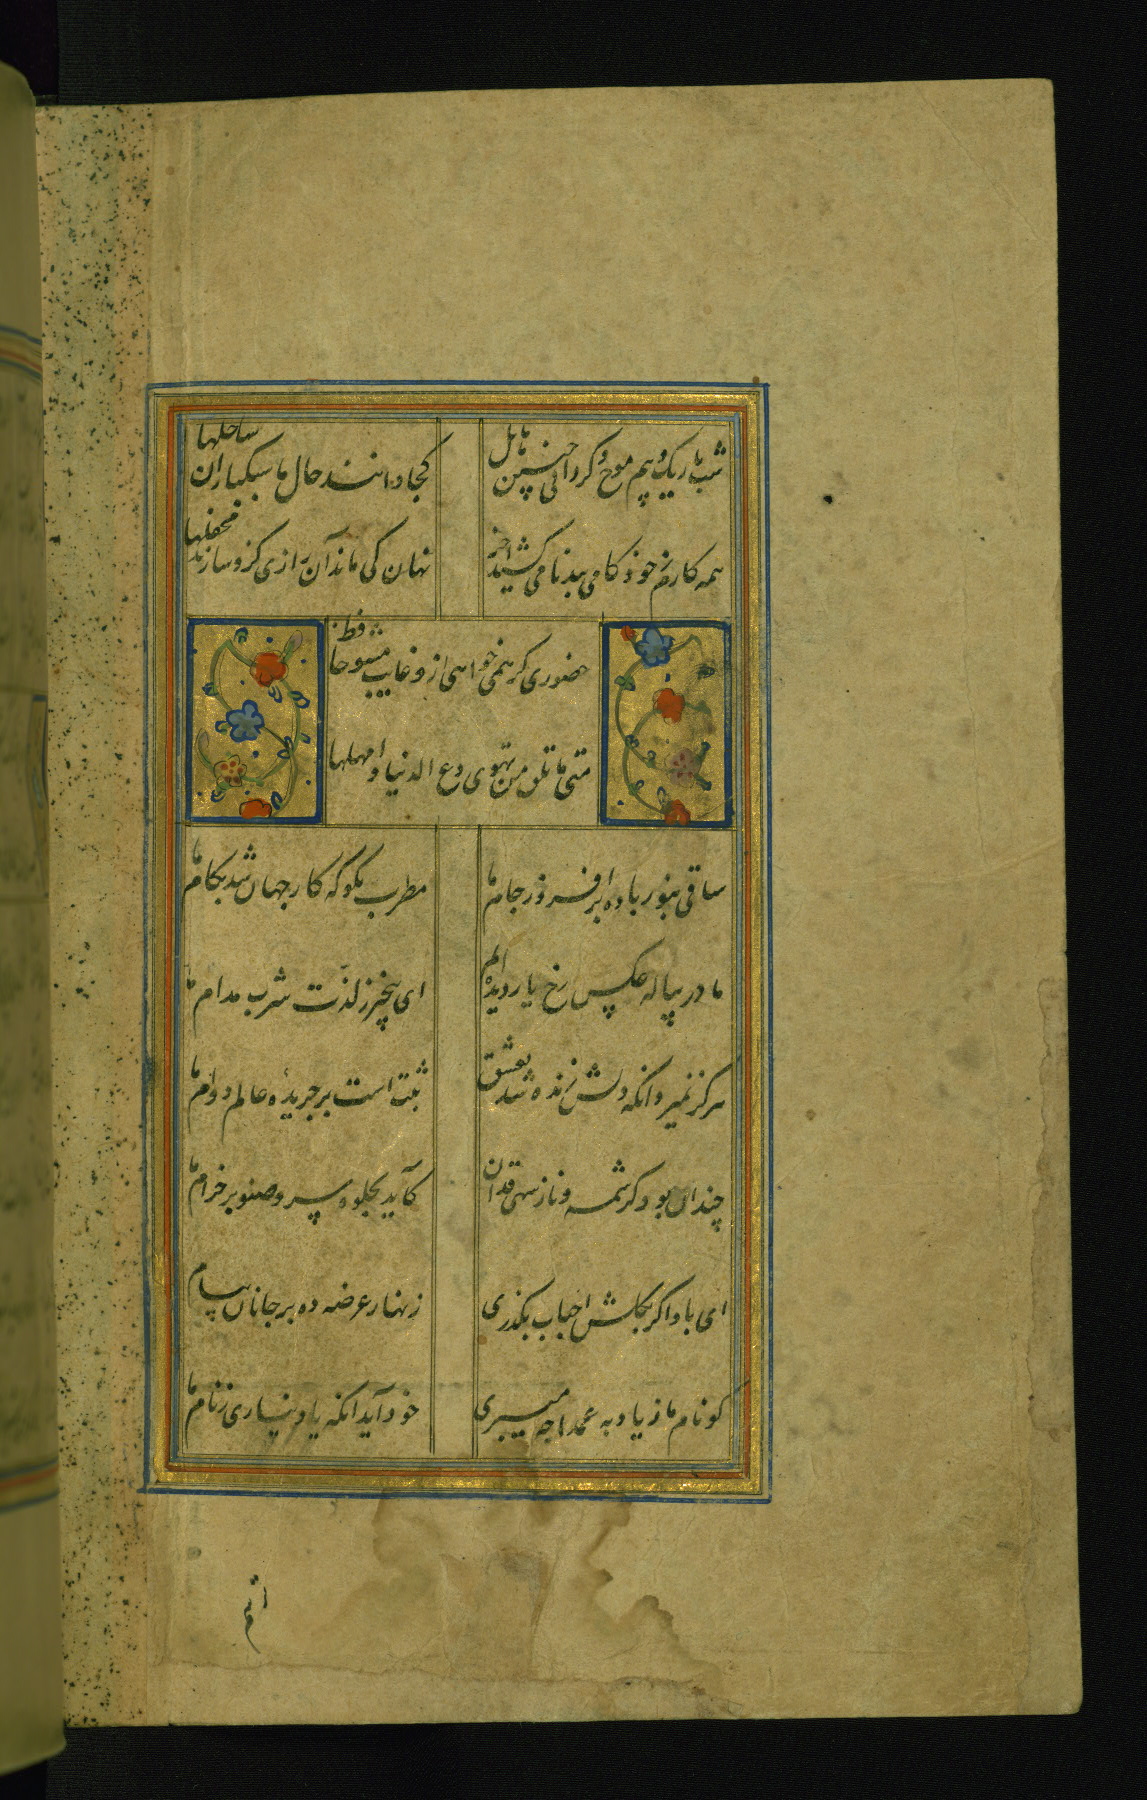 شب تاریک و بیم موج و گردابی چنین هایل
کجا دانند حال ما سبکباران ساحلها
همه کارم ز خود کامی ببدنامی کشید آخر
نهان کی ماند آن رازی کزو سازند محفلها
حضوری گر همی خواهی ازو غایب مشو حافظ
متی ما تلق من تهوی دع الدنیا و امهلها
ساقی بنور باده برافروز جام ما
مطرب بگو که کار جهان شد بکام ما
ما در پیاله عکس رخ یار دیده‌ایم
ای بیخبر ز لذت شرب مدام ما
هرگز نمیرد آنکه دلش زنده شد بعشق
ثبت است بر جریدهٔ عالم دوام ما
چندان بود کرشمه و ناز سهی قدان
کآید بجلوه سرو صنوبر خرام ما
ای باد اگر بگلشن احباب بگذری
زنهار عرضه ده بر جانان پیام ما
گو نام ما ز یاد به عمدا چه میبری
خود آید آنکه یاد نیاری ز نام ما